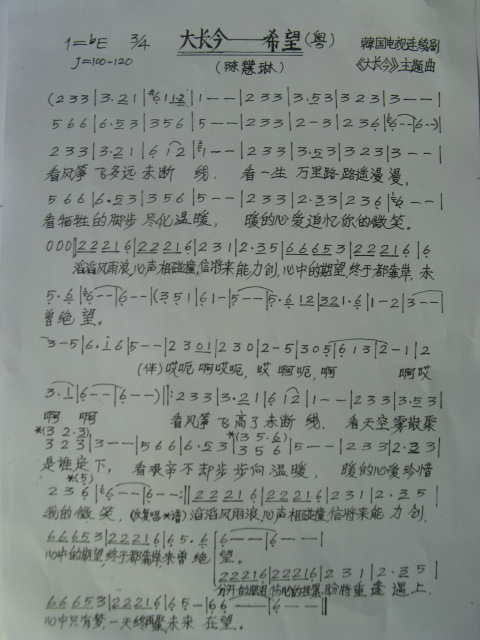 1=bE 3/4 大长今——希望(粤) 韩国电视连续剧
♩=100-120 (陈慧琳) 《大长今》主题曲
(2 3 3|3·2 1|6 1 1 2|1 - -|2 3 3|3·5 3|3 2 3|3 - -|
5 6 6|6·5 3|3 5 6|5 - -|2 3 3|2 - 3|2 3 6|6 - -|6 - -)|
2 3 3|3·2 1|6 1 2|1 - -|2 3 3|3·5 3|3 2 3|3 - -|
看风筝 飞多远 未断 线, 看一生 万里路 路遥漫漫,
5 6 6|6·5 3|3 5 6|5 - -|2 3 3|2·3 3|2 3 6|6 - -|
看牺牲的脚步 尽化温暖, 暖的心爱追忆你的微笑。
0 0 0‖2 2 2 1 6|2 2 2 1 6|2 3 1|2·3 5|6 6 6 5 3|2 2 2 1 6|6
滔滔风雨浪,心声相碰撞,信将来能力创,心中的期望,终于都靠岸, 未
5·6|6 - -|6 - -|(3 5 1|6 1 -|5 - -|5·6 1 2|3 2 1·6|1 - 2|3 - -|
曾绝 望。
3 - 5|6·1 6|5 - -|2 3 0 1|2 3 0|2 - 5|3 0 5|6 1 3|2 - 1|2
(伴)哎呃 啊哎呃, 哎 啊呃,啊 啊哎
3·1|6 - -|6 - -)‖:2 3 3|3·2 1|6 1 2|1 - -|2 3 3|3·5 3|
啊 啊 看风筝 飞高了 未断 线, 看天空 雾散聚
*(3 2·3) *(3 5·6)
3 2 3|3 - -|5 6 6|6·5 3|3 5 6|5 - -|2 3 3|2·3 3|
是谁定下, 看艰辛不却步 步向温暖, 暖的心爱珍惜
*(5)
2 3 6|6 - -|6 - -:‖2 2 2 1 6|2 2 2 1 6|2 3 1|2·3 5|
我的微笑, 滔滔风雨浪,心声相碰撞,信将来能力创,
6 6 6 5 3|2 2 2 1 6|6 5·6|6 - -|6 - -|
心中的期望,终于都靠岸,未曾绝 望。
2 2 2 1 6|2 2 2 1 6|2 3 1|2·3 5|
重逢 遇上,
6 6 6 5 3|2 2 2 1 6|6 5 -|6 6 - -|6 - -‖
心中只有梦,一天终 未来 在望。